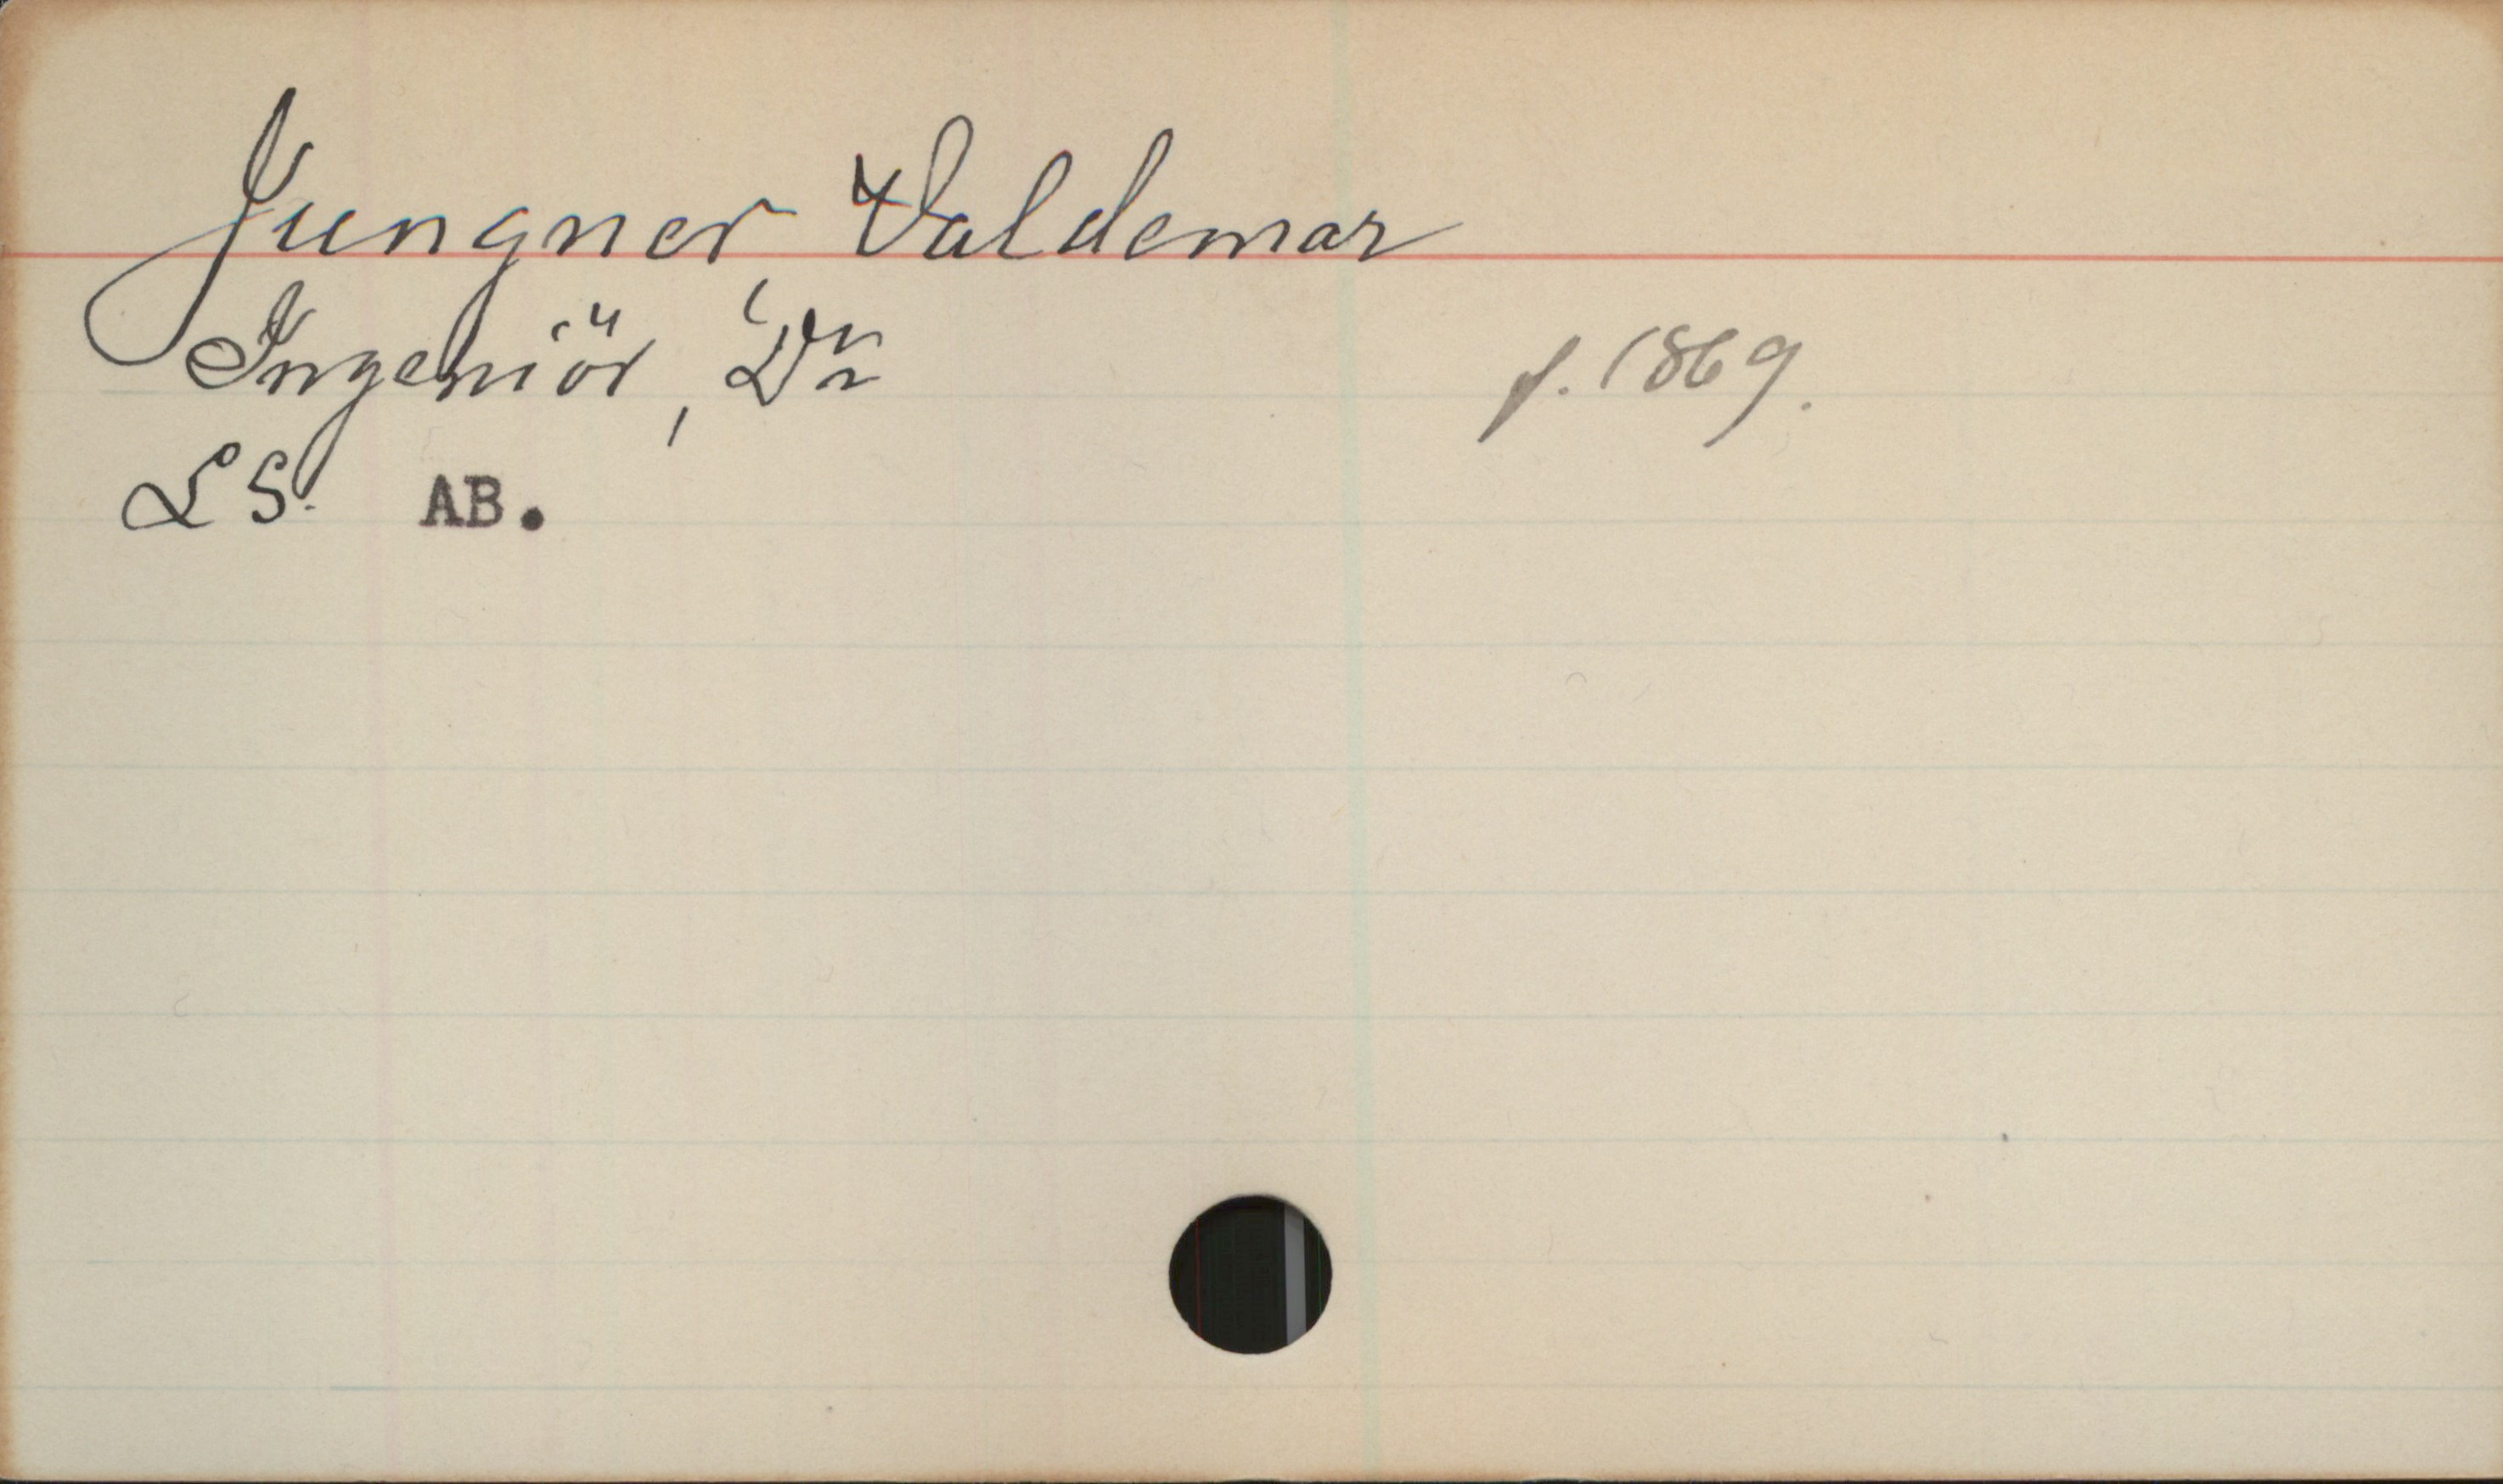 Jungner, Valdemar
Ingeniör, Dr
f. 1869.
LS. AB.